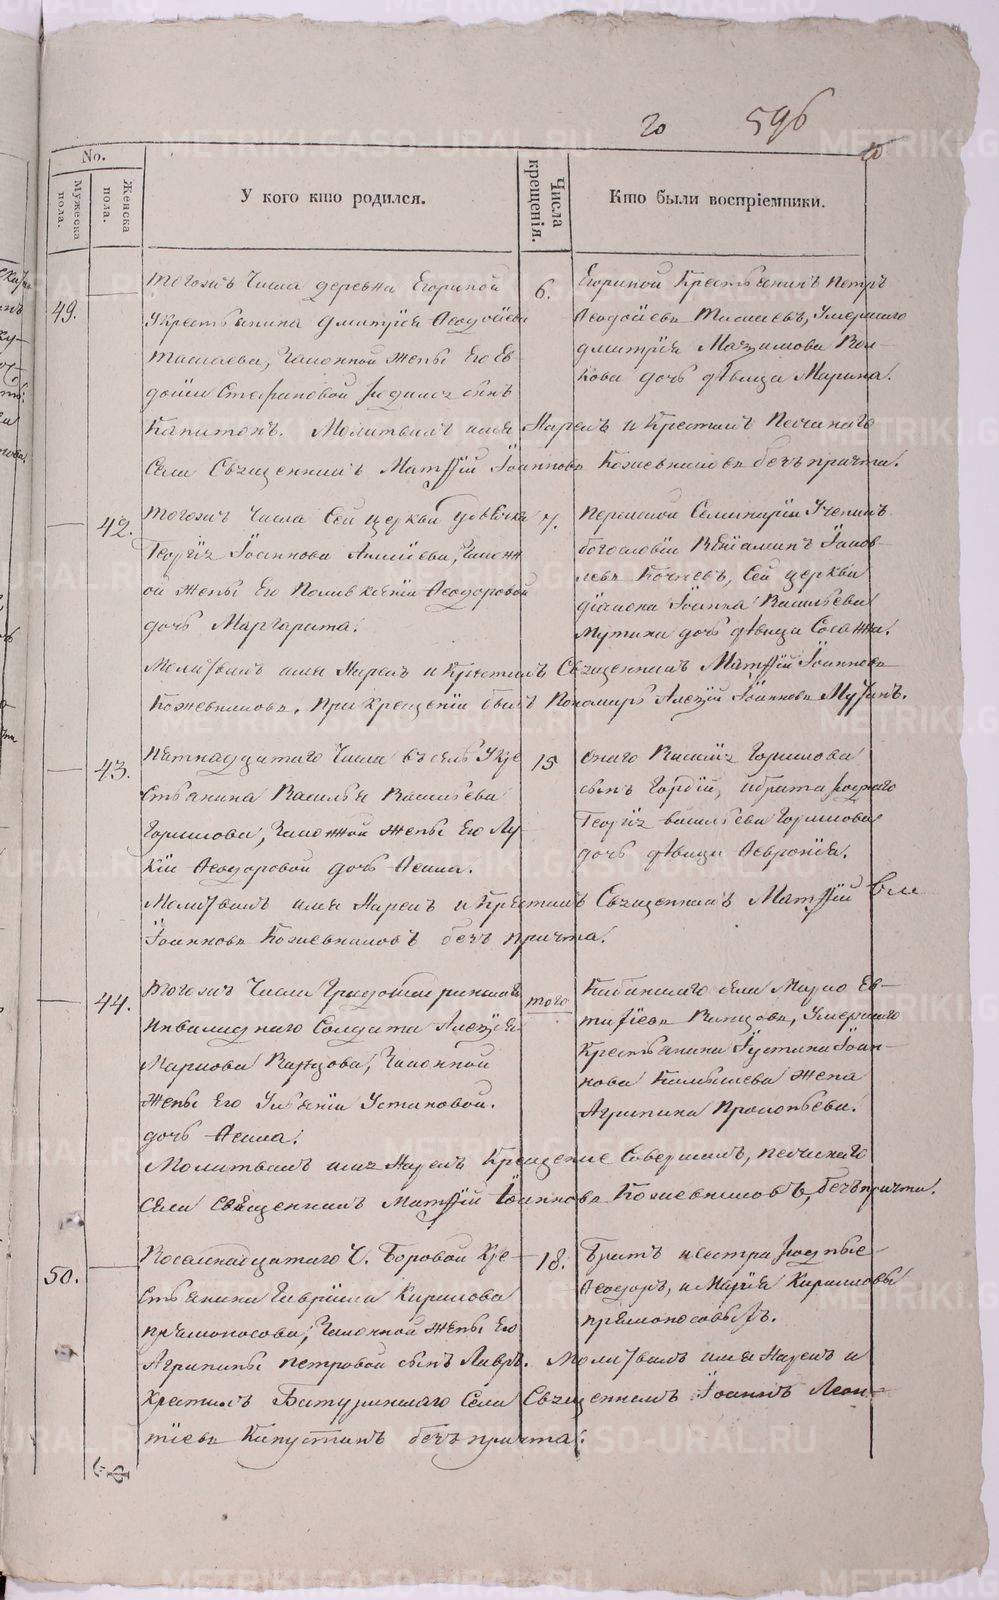 20
596
No.
Мужеска пола.
Женска пола.
У кого кто родился.
Числа крещенія.
Кто были воспріемники.
49.
тогожъ Числа деревни Егориной
у крестьянина Дмитрія Ѳеодосѣева
законной жены Его Ев-
докіи Стефановой родился сынъ
Капитонъ. Молитвилъ имя Нарекъ и Крестилъ Песчанаго
Села Священникъ Матѳій Іоанновъ Кожевниковъ безъ причта.
6.
Егориной Крестьянинъ Петръ
Ѳеодосѣевъ Умершаго
Дмитрія Максимова Вол-
кова дочь дѣвица Марина.
42.
тогожъ Числа Сей церкви
Георгія Іоаннова Алексѣева, Закон-
ой жены Его Поликсеніи Ѳеодоровой
дочь Маргарита.
Молитвилъ имя Нарекъ и Крестилъ Священникъ Матѳій Іоанновъ
Кожевниковъ. При Крещеніи былъ Пономарь Алексій Іоанновъ Мутинъ.
7.
Пермской Семинаріи Ученикъ
богословіи Веніаминъ Іаков-
левъ Кочневъ, Сей церкви
діакона Іоанна Васильева
Мутина дочь дѣвица Сосанна.
43.
Пятнадцатаго Числа въ селѣ у кре
стьянина Василья Васильева
Горшкова, Законной жены Его Лу-
кіи Ѳеодоровой дочь Ѳекла.
Молитвилъ имя Нарекъ и Крестилъ Священникъ Матѳій
Іоанновъ Кожевниковъ безъ причта.
15
онаго Василія Горшкова
сынъ Гордій, и брата роднаго
Георгія Васильева Горшкова
дочь дѣвица Ѳевронія.
44.
Тогожъ Числа
Инвалиднаго Солдата Алексѣя
Маркова Законной
жены Его Устиновой.
дочь Ѳекла.
Молитвилъ имя Нарекъ Крещение Совершилъ, песчанаго
Села Священникъ Матѳій Іоанновъ Кожевниковъ, безъ причта.
того
Кабанскаго села Марко Ев-
тифіевъ Умершаго
Крестьянина Іустина Іоан-
нова Камышева жена
Агрипина Прокопьева.
50.
Восемнадцатаго Ч. Боровой Кре-
стьянина Гавріила Кирилова
Прямоносова, Законной жены Его
Агрипины Петровой сынъ Лавръ. Молитвилъ имя Нарекъ и
Крестилъ Батуринскаго Села Священникъ Іоаннъ Леон-
тіевъ Капустинъ безъ причта.
18.
Братъ и сестра родные
Ѳеодоръ, и Марія Кириловы
Прямоносовы.
METRIKI.GASO-URAL.RU